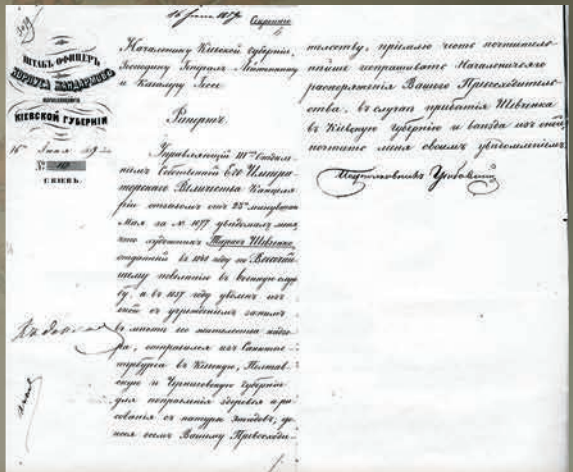 16 Июня 1859
Секретно
ШТАБЪ-ОФИЦЕРЪ
КОРПУСА ЖАНДАРМОВЪ
КІЕВСКОЙ ГУБЕРНІИ
16 Июня 1859 г.
№ 10
Г. КІЕВЪ.
Начальнику Кіевской Губерніи,
Господину Генералъ-Лейтенанту
и Кавалеру Гессе
Рапортъ.
Управляющій IIIмъ Отдѣле-
ніемъ Собственной Его Импера-
торскаго Величества Канцеля-
ріи отзывомъ отъ 23го минувшаго
Мая за № 1077 увѣдомилъ меня,
что художникъ Тарасъ Шевченко,
отданный въ году по Высочай-
шему повелѣнію въ военную служ-
бу, а въ 1857 году уволенъ изъ
оной съ учрежденіемъ за нимъ
въ мѣстѣ его жительства надзо-
ра, отправился изъ Санктпе-
тербурга въ Кіевскую, Полтав-
скую и Черниговскую губерніи
для поправленія здоровья и ри-
сованія съ натуры этюдовъ; до-
нося о семъ Вашему Превосходи-
тельству, приемлю честь почтитель-
нѣйше испрашивать Начальническаго
распоряженія Вашего Превосходитель-
ства, въ случаѣ прибытія Шевченка
въ Кіевскую губернію и выѣзда изъ оной,
почтить меня своимъ увѣдомленіемъ.
Подполковникъ